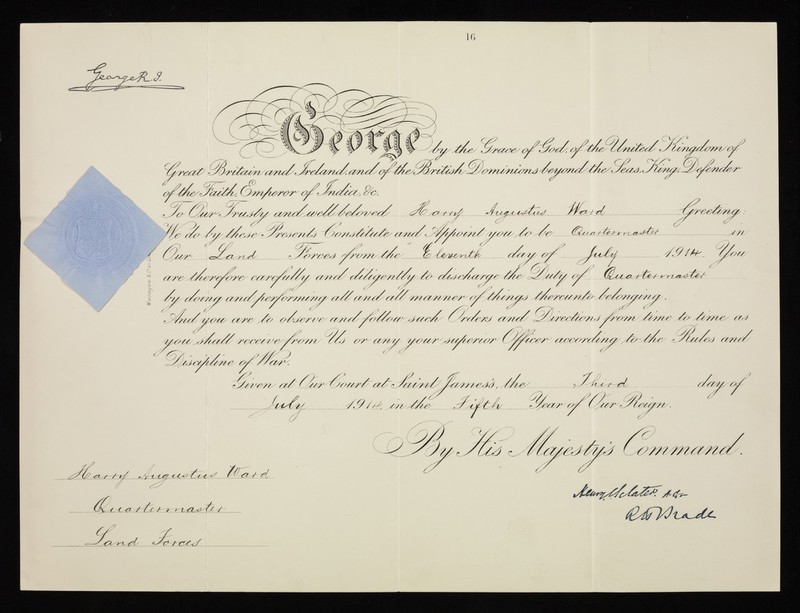 16
George R. I.
George by the Grace of God, of the United Kingdom of
Great Britain and Ireland, and of the British Dominions beyond the Seas, King, Defender
of the Faith, Emperor of India, &c.
To Our Trusty and well beloved Harry Augustus Ward Greeting:
We do by these Presents Constitute and Appoint you to be Quartermaster in
Our Land Forces from the Eleventh day of July 1914. You
are therefore carefully and diligently to discharge the Duty of Quartermaster
by doing and performing all and all manner of things thereunto belonging.
And you are to observe and follow such Orders and Directions from time to time as
you shall receive from Us or any your superior Officer according to the Rules and
Discipline of War.
Given at Our Court at Saint James's, the Third day of
July 1914 in the Fifth Year of Our Reign.
By His Majesty's Command.
Harry Augustus Ward
Quartermaster
Land Forces
Henry Sclater. AG
R H Brade